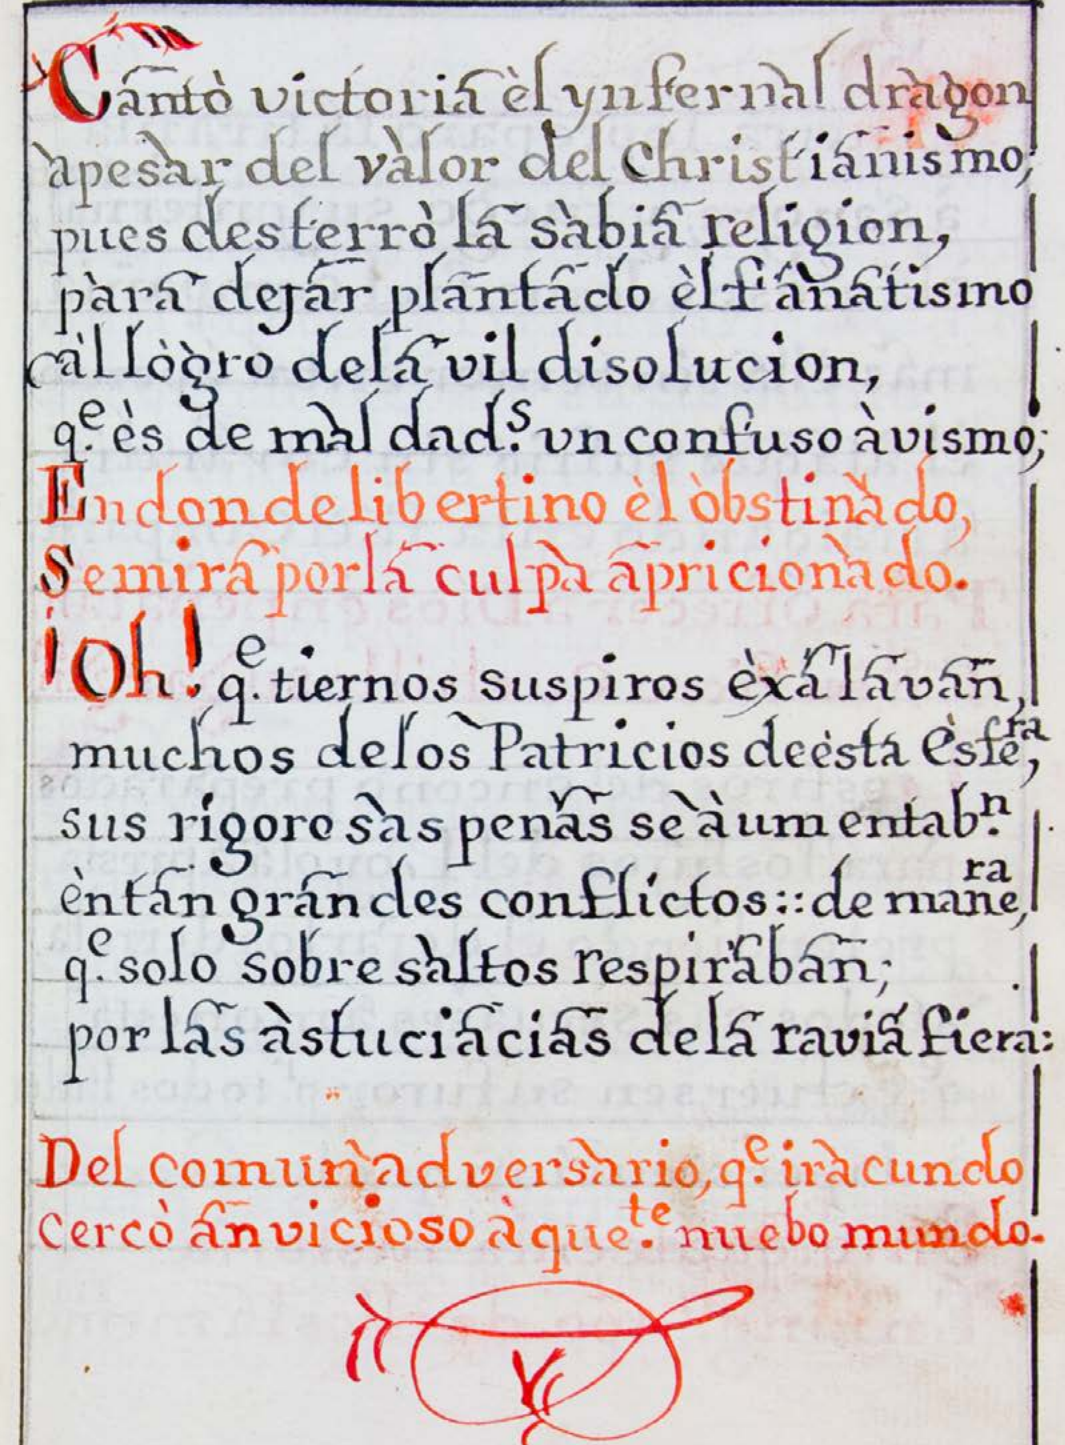 Cantò victoria èl ynfernàl dràgon
àpesàr del vàlor del Christianismo;
pues desterrò la sàbia religion,
pàra dejar plantado èl fanatismo
àl lògro dela vil disolucion,
q.^e ès de màldad.^s vn confuso àvismo;
En donde libertino èl òbstinàdo,
Se mira por la culpà apricionàdo.
¡Oh! q.^e tiernos suspiros èxàlavan,
muchos de los Patricios de èsta Èsfe^ra,
sus rigorosàs penas se àumentab.^n
èn tan grandes conflictos:: de mane^ra,
q.^e solo sobresàltos respiràban;
por las àstuciacias dela ravia fiera:
Del comun àdversàrio, q.^e iràcundo
Cercò an vicioso àque.^te nuebo mundo.